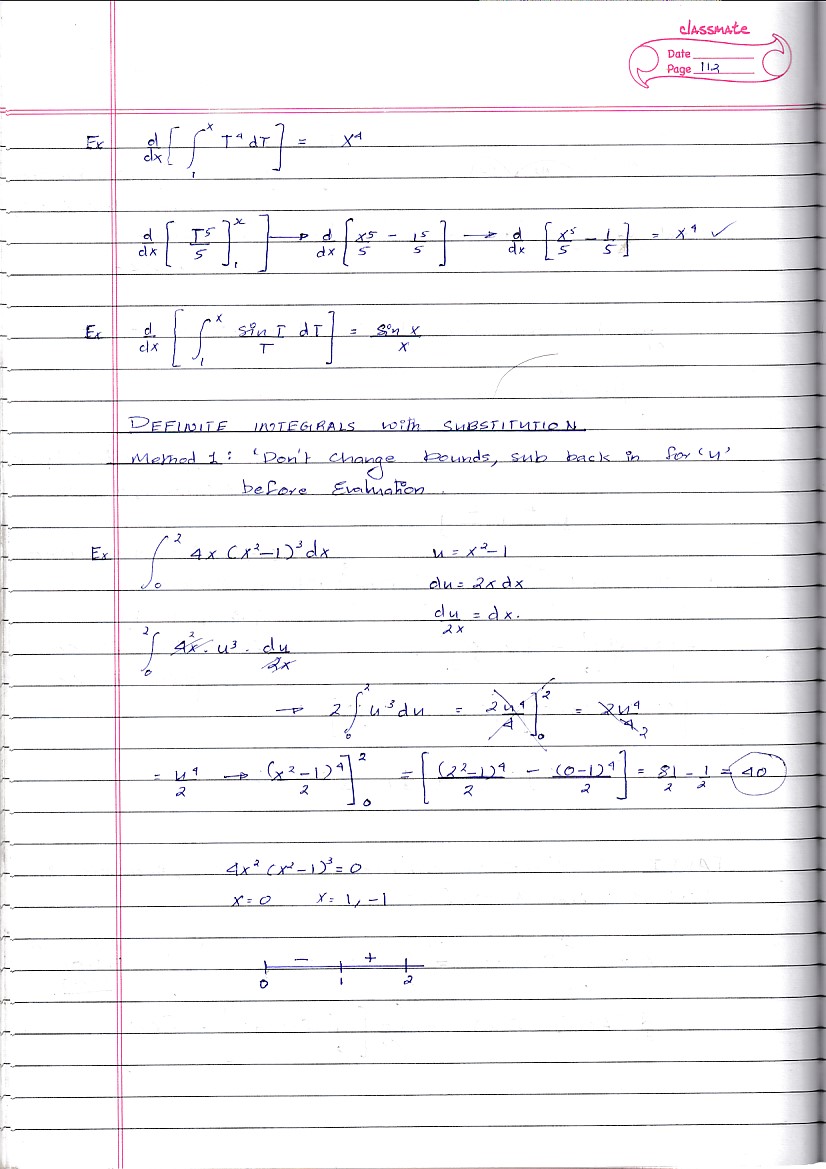 classmate
Date
Page 112
Ex d/dx [ ∫₁ˣ T⁴ dT ] = x⁴
d/dx [ T⁵/5 ]₁ˣ ] → d/dx [ x⁵/5 - 1⁵/5 ] → d/dx [ x⁵/5 - 1/5 ] = x⁴ ✓
Ex d/dx [ ∫₁ˣ sin T/T dT ] = sin x/x
DEFINITE INTEGRALS with SUBSTITUTION
Method 1: 'Don't change bounds, sub back in for 'u'
before Evaluation.
Ex ∫₀² 4x (x²-1)³ dx u = x²-1
du = 2x dx
du/2x = dx.
∫₀² 4x² . u³ . du/2x
→ 2 ∫₀² u³ du = 2u⁴/4 ]₀² = 2u⁴/4 2
= u⁴/2 → (x²-1)⁴/2 ]₀² = [ (2²-1)⁴/2 - (0-1)⁴/2 ] = 81/2 - 1/2 = 40
4x² (x²-1)³ = 0
x = 0 x = 1, -1
- +
0 1 2